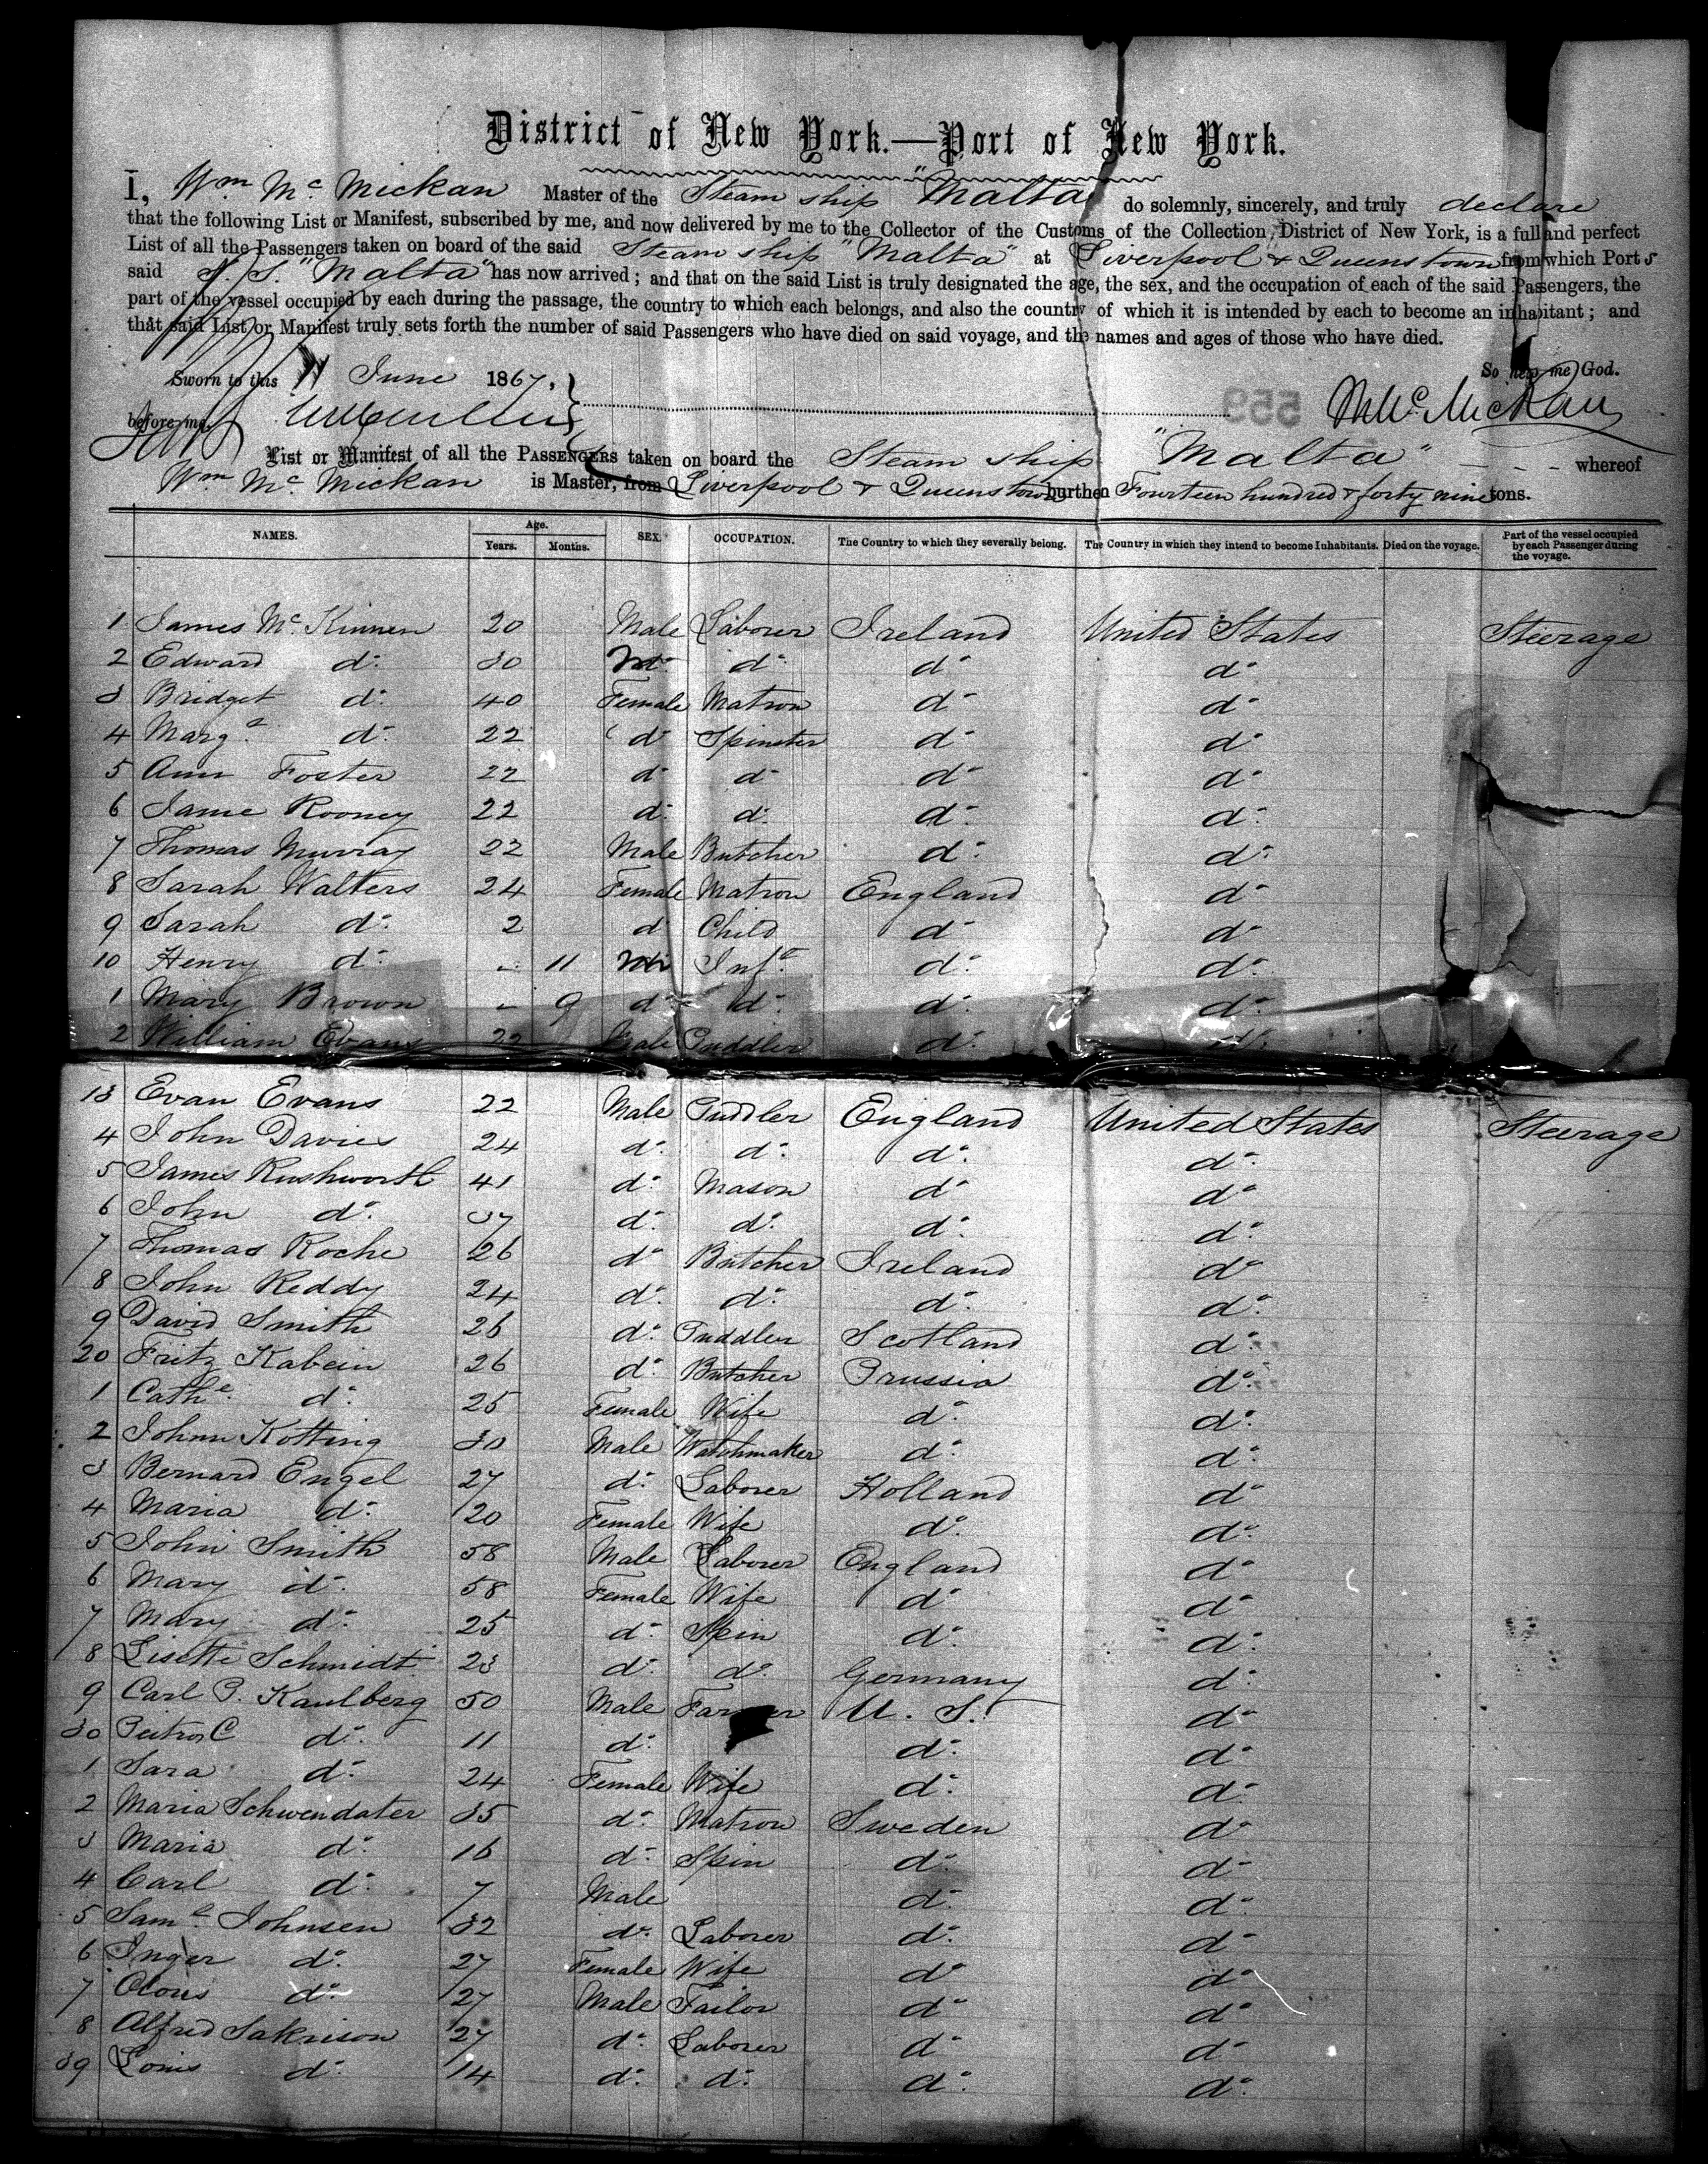 District of New York.—Port of New York.
I, Wm Mc Mickan Master of the Steam ship "Malta" do solemnly, sincerely, and truly declare
that the following List or Manifest, subscribed by me, and now delivered by me to the Collector of the Customs of the Collection District of New York, is a full and perfect
List of all the Passengers taken on board of the said Steam ship "Malta" at Liverpool & Queenstown from which Ports
said S. S. "Malta" has now arrived; and that on the said List is truly designated the age, the sex, and the occupation of each of the said Passengers, the
part of the vessel occupied by each during the passage, the country to which each belongs, and also the country of which it is intended by each to become an inhabitant; and
that said List or Manifest truly sets forth the number of said Passengers who have died on said voyage, and the names and ages of those who have died.
So help me God.
Sworn to this 11 June 1867,
before me, 559 Wm Mc Mickan
List or Manifest of all the PASSENGERS taken on board the Steam ship "Malta" - - - whereof
Wm Mc Mickan is Master, from Liverpool & Queenstown burthen Fourteen hundred & forty nine tons.
NAMES. Age. Years. Months. SEX. OCCUPATION. The Country to which they severally belong. The Country in which they intend to become Inhabitants. Died on the voyage. Part of the vessel occupied by each Passenger during the voyage.
1 James Mc Kinnen 20 Male Laborer Ireland United States Steerage
2 Edward do 30 do do do
3 Bridget do 40 Female Matron do do
4 Margt do 22 do Spinster do do
5 Ann Foster 22 do do do do
6 Jane Rooney 22 do do do do
7 Thomas Murray 22 Male Butcher do do
8 Sarah Walters 24 Female Matron England do
9 Sarah do 2 do Child do do
10 Henry do - 11 Inft do do
1 Mary Brown - 9 do do do do
2 William Evans 22 Male Puddler do do
13 Evan Evans 22 Male Puddler England United States Steerage
4 John Davies 24 do do do do
5 James Rushworth 41 do Mason do do
6 John do 37 do do do do
7 Thomas Roche 26 do Butcher Ireland do
8 John Reddy 24 do do do do
9 David Smith 26 do Puddler Scotland do
20 Fritz Kabein 26 do Butcher Prussia do
1 Cathe do 25 Female Wife do do
2 Johnn Kotting 30 Male Watchmaker do do
3 Bernard Engel 27 do Laborer Holland do
4 Maria do 20 Female Wife do do
5 John Smith 58 Male Laborer England do
6 Mary do 58 Female Wife do do
7 Mary do 25 do Spin do do
8 Lisette Schmidt 23 do do Germany do
9 Carl P. Kaulberg 50 Male Farmer U. S. do
30 C do 11 do do do
1 Sara do 24 Female Wife do do
2 Maria Schwendater 35 do Matron Sweden do
3 Maria do 16 do Spin do do
4 Carl do 7 Male do do
5 Saml Johnsen 32 do Laborer do do
6 Inger do 27 Female Wife do do
7 do 27 Male Tailor do do
8 Alfred Sakrison 27 do Laborer do do
39 Louis do 14 do do do do